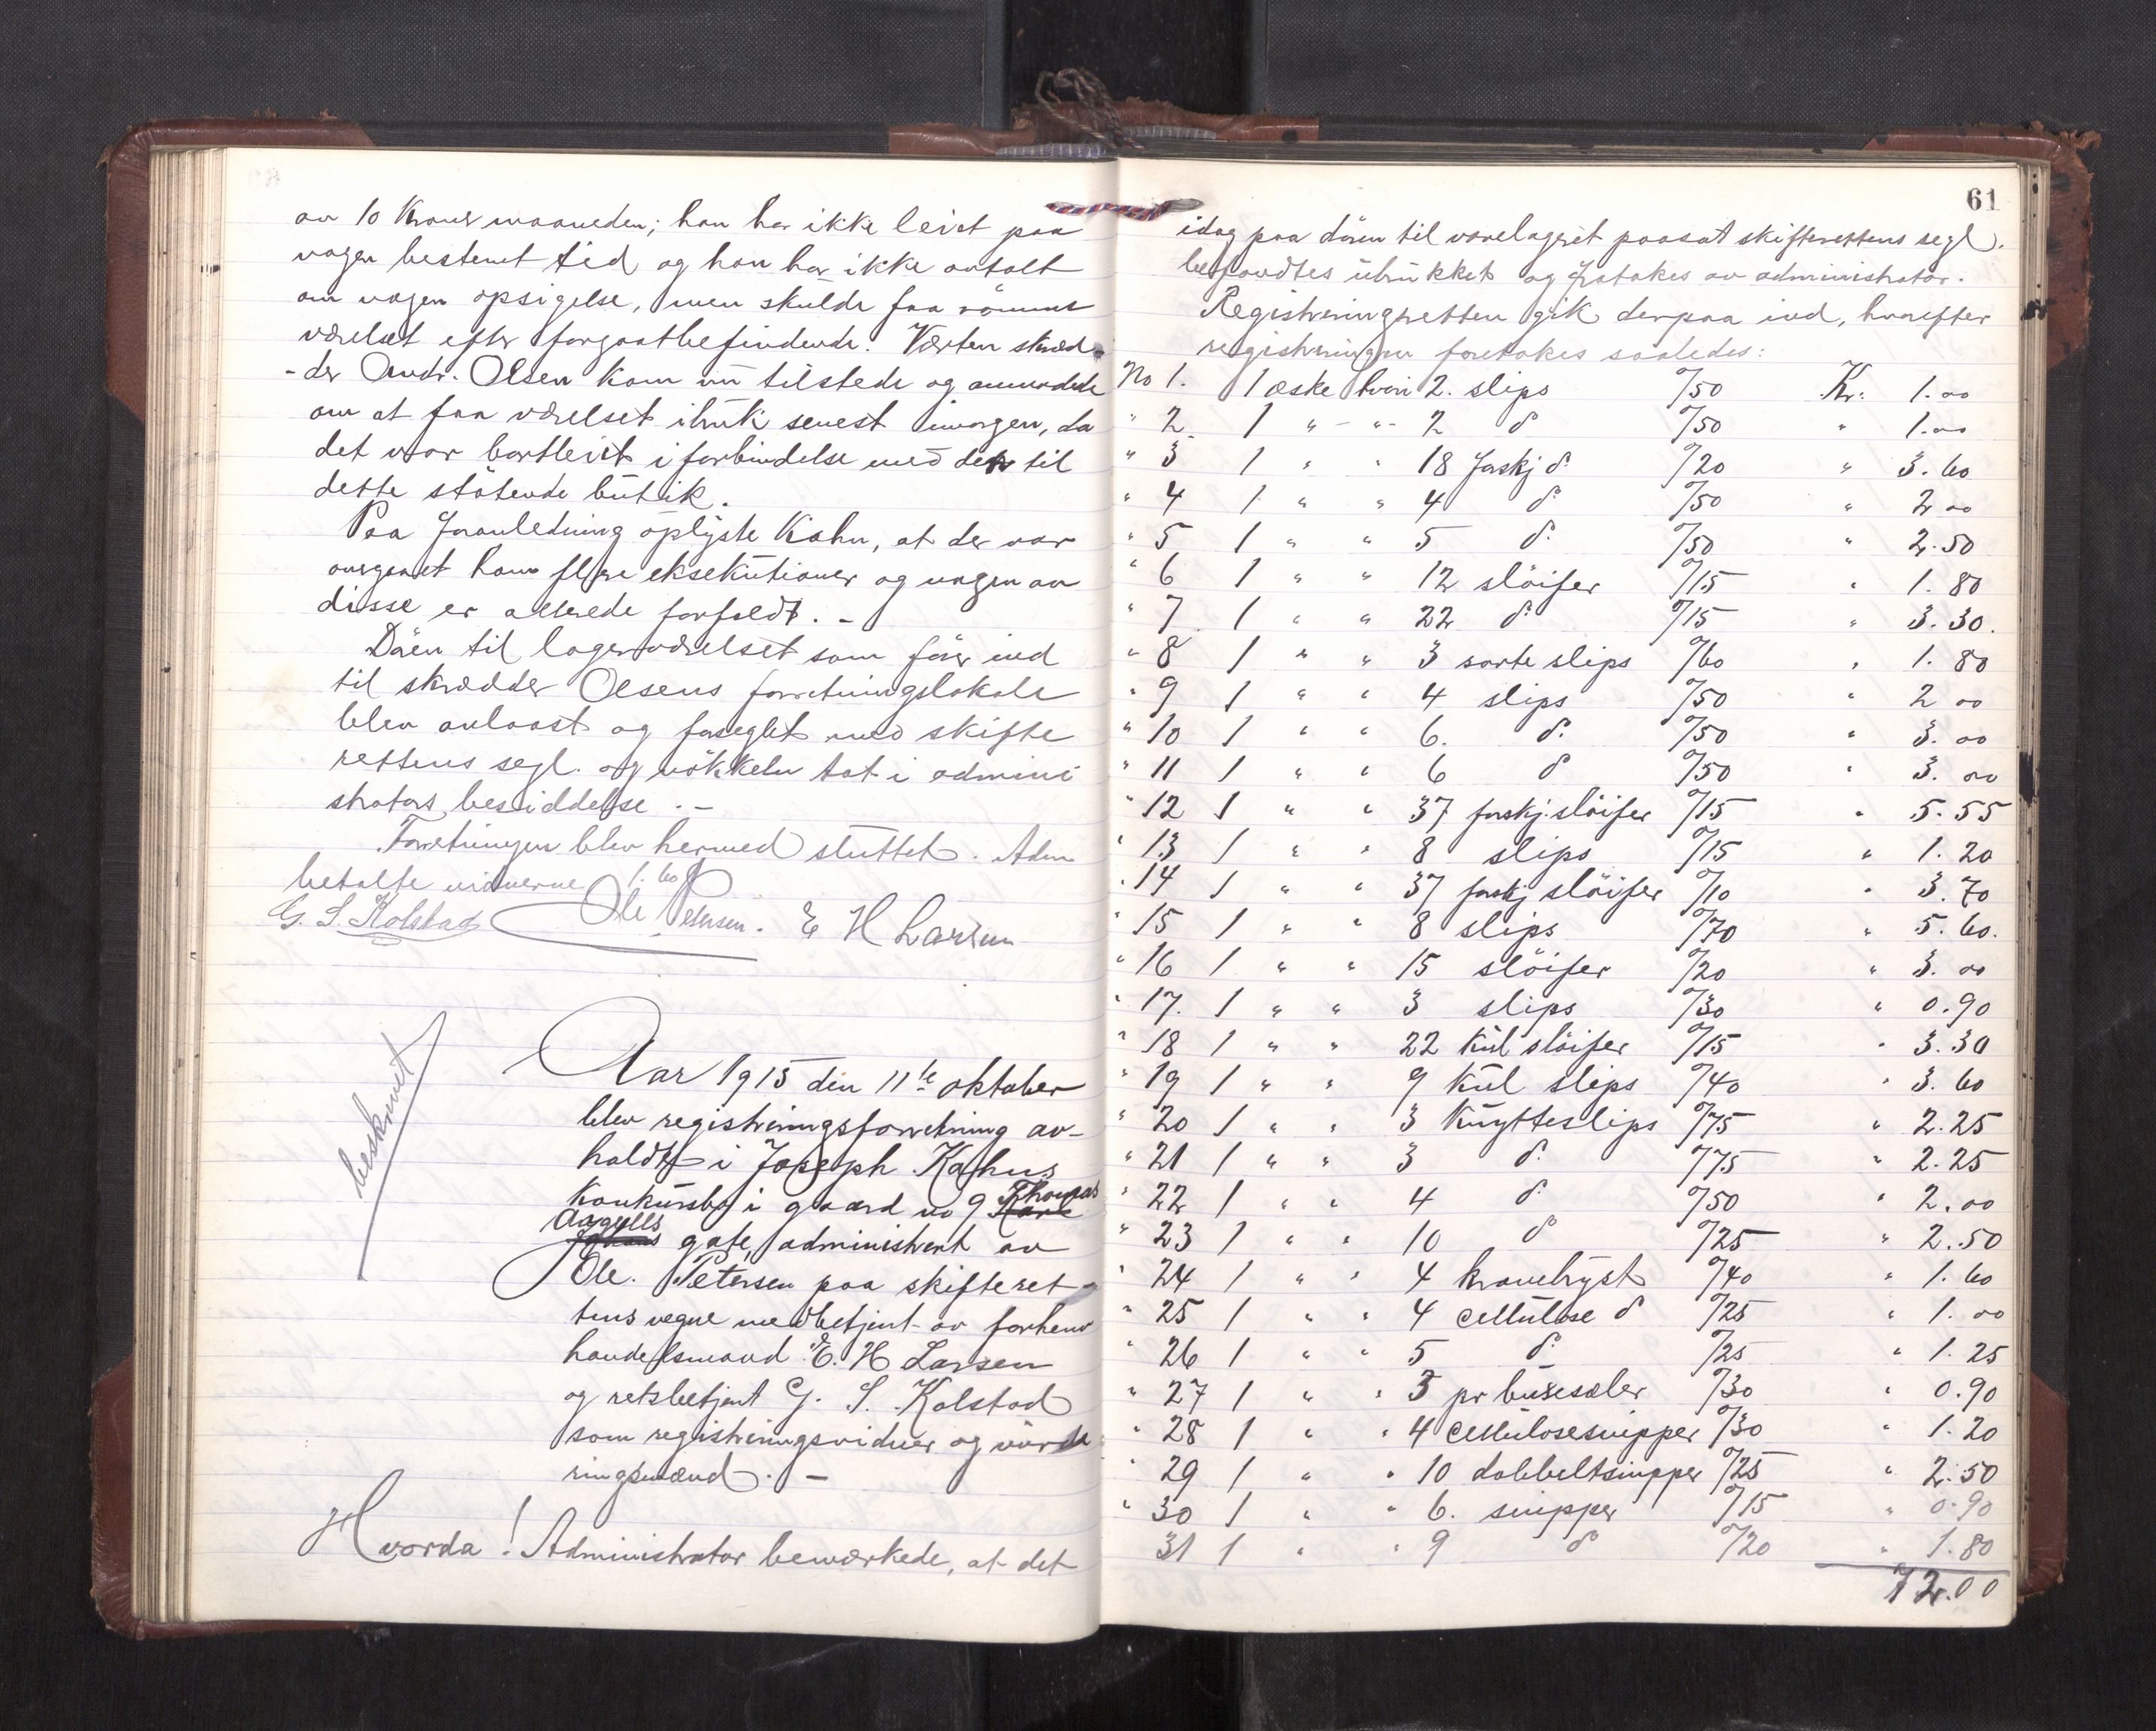 av 10 Kroner maaneden; han har ikke leiet paa
nogen bestemt tid og han har ikke avtalt
om nogen opsigelse, men skulde faa römme
værelset efter forgodtbefindende. Værten skræd-
-der Andr. Olsen kom nu tilstede og anmodede
om at faa værelset ibruk senest imorgen, da
det var bortleiet i forbindelse med den til
dette stötende butik.
Paa foranledning oplyste Kahn, at der var
overgaaet ham flere eksekutioner og nogen av
disse er allerede forfaldt. -
Dören til lagerværelset som förer ind
til skrædder Olsens forretningslokale
blev avlaast og forseglet med skifte
rettens segl. og nökkelen tat i admini
strators besiddelse. -
Forretningen blev hermed sluttet. Adm
betalte vidnerne 1.60
G. S. Kolstad Ole Petersen. E H Larsen
beskrevet
Aar 1915 den 11te oktober
blev registreringsforretning av-
holdt i Joseph Kahns
Konkursbo i gaard no 9 Thomas
Angells gate, administrert av
Ole Petersen paa skifteret-
tens vegne medbetjent av forhenv
handelsmand E. H Larsen
og retsbetjent G. S. Kolstad
som registreringsvidner og vurde
ringsmænd. -
Hvorda! Administrator bemærkede, at det
61
idag paa dören til varelageret paasat skifterettens segl.
befandtes ubrukket og fratokes av administrator.
Registreringsretten gik derpaa ind, hvorefter
registreringen foretokes saaledes:
No 1. 1 æske hvori 2. slips °/50 Kr. 1.00
" 2 1 " - " - 2 d° °/50 " 1.00
" 3 1 " " 18 forskj d° °/20 " 3.60
" 4 1 " " 4 d° °/50 " 2.00
" 5 1 " " 5 d° °/50 " 2.50
" 6 1 " " 12 slöifer °/15 " 1.80
" 7 1 " " 22 d° °/15 " 3.30.
" 8 1 " " 3 sorte slips °/60 " 1.80
" 9 1 " " 4 slips °/50 " 2 00
" 10 1 " " 6. d° °/50 " 3.00
" 11 1 " " 6 d° °/50 " 3.00
" 12 1 " " 37 forskj. slöifer °/15 " 5.55
" 13 1 " " 8 slips °/15 " 1.20
" 14 1 " " 37 forskj slöifer °/10 " 3.70
" 15 1 " " 8 slips °/70 " 5.60.
" 16 1 " " 15 slöifer °/20 " 3.00
" 17. 1 " " 3 slips °/30 " 0.90
" 18 1 " " 22 kul slöifer °/15 " 3.30
" 19 1 " " 9 kul slips °/40 " 3.60
" 20 1 " " 3 knytteslips °/75 " 2.25
" 21 1 " " 3 d° °/75 " 2.25
" 22 1 " " 4 d° °/50 " 2.00
" 23 1 " " 10 d° °/25 " 2.50
" 24 1 " " 4 kravebryst °/40 " 1.60
" 25 1 " " 4 cellulose d° °/25 " 1.00
" 26 1 " " 5 d° °/25 " 1.25
" 27 1 " " 3 pr buxeseler °/30 " 0.90
" 28 1 " " 4 cellulosesnipper °/30 " 1.20
" 29 1 " " 10 dobbeltsnipper °/25 " 2.50
" 30 1 " " 6. snipper °/15 " 0.90
31 1 " " 9 d° °/20 " 1.80
72.00